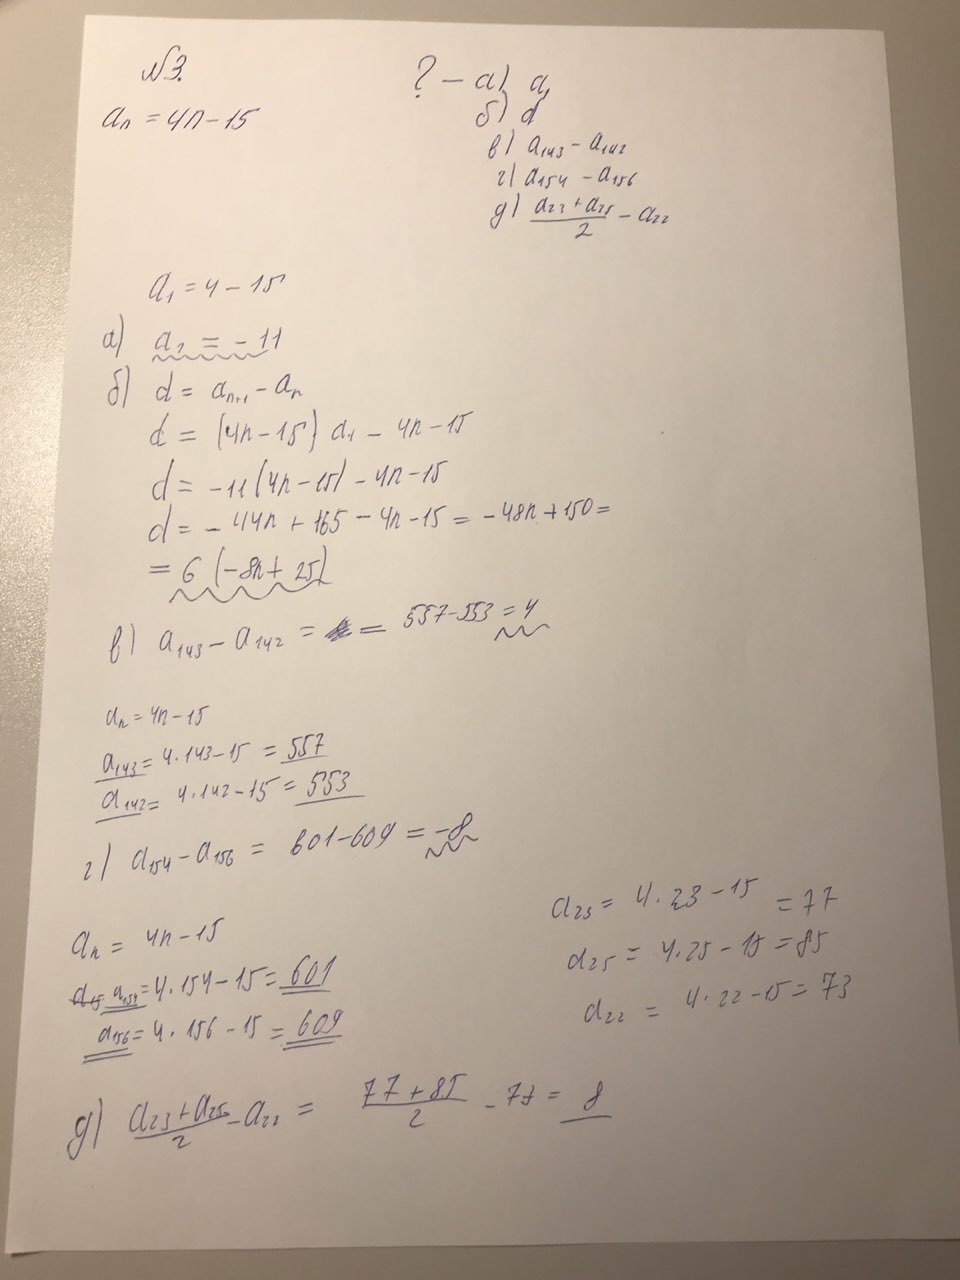 №3.
aₙ = 4n - 15
? - а) a₁
б) d
в) a₁₄₃ - a₁₄₂
г) a₁₅₄ - a₁₅₆
д) (a₂₃ + a₂₅)/2 - a₂₂
a₁ = 4 - 15
а) a₁ = - 11
б) d = aₙ₊₁ - aₙ
d = (4n - 15) a₁ - 4n - 15
d = -11 (4n - 15) - 4n - 15
d = - 44n + 165 - 4n - 15 = - 48n + 150 =
= 6 (-8n + 25)
в) a₁₄₃ - a₁₄₂ = = 557 - 553 = 4
aₙ = 4n - 15
a₁₄₃ = 4 · 143 - 15 = 557
a₁₄₂ = 4 · 142 - 15 = 553
г) a₁₅₄ - a₁₅₆ = 601 - 609 = -8
aₙ = 4n - 15
a₁₅₄ = 4 · 154 - 15 = 601
a₁₅₆ = 4 · 156 - 15 = 609
a₂₃ = 4 · 23 - 15 = 77
a₂₅ = 4 · 25 - 15 = 85
a₂₂ = 4 · 22 - 15 = 73
д) (a₂₃ + a₂₅)/2 - a₂₂ = (77 + 85)/2 - 73 = 8